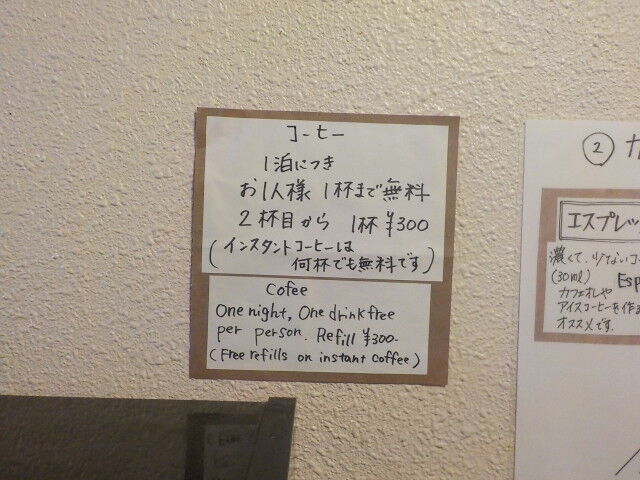 コーヒー
1泊につき
お1人様 1杯まで無料
2杯目から 1杯 ¥300
(インスタントコーヒーは
何杯でも無料です)
Cofee
One night, One drink free
per person. Refill ¥300-
(Free refills on instant coffee)
②
エスプレッ
濃くて、少ないコー
(30ml) Esp
カフェオレや
アイスコーヒーを作
オススメです。